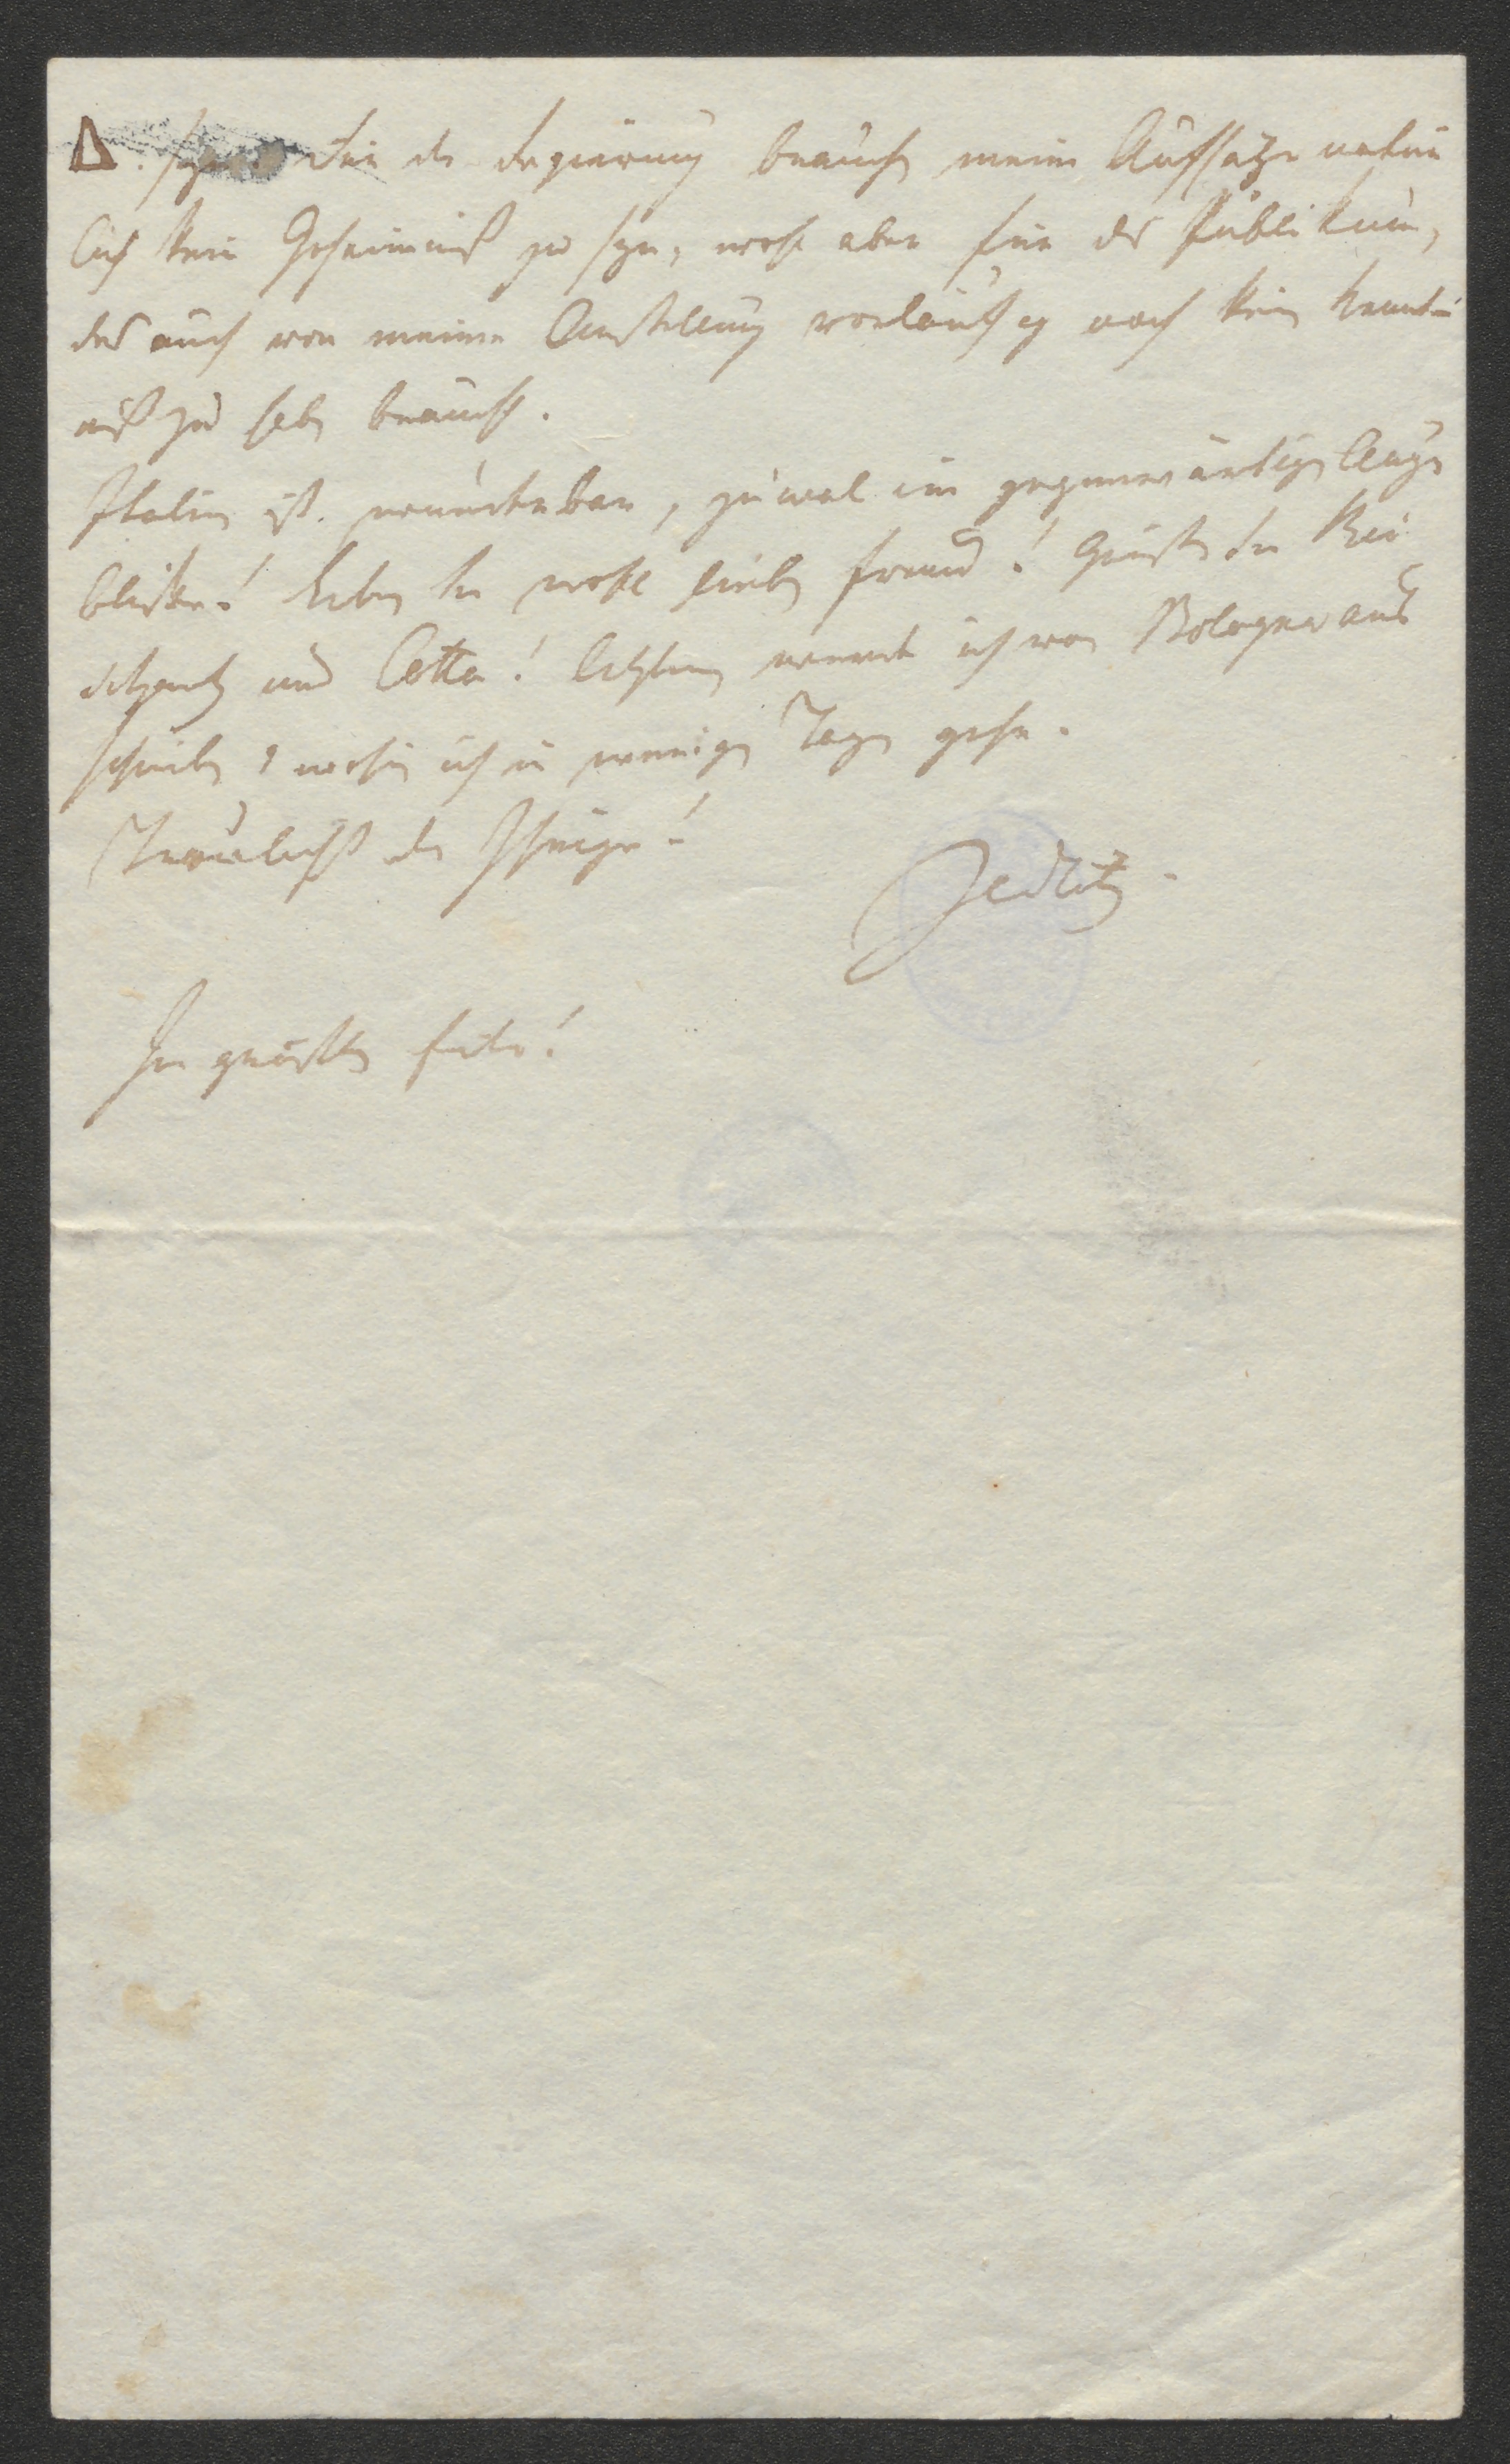 Δ. seyn. Für die Regierung brauchen meine Aufsätze natür
lich kein Geheimniß zu seyn, wohl aber für das Publikum,
das auch von meiner Anstellung vorläufig noch keine Kennt-
niß zu haben braucht.
Italien ist wunderbar, zumal im gegenwärtigen Auge
blicke! Leben Sie wohl lieber Freund! Grüßen Sie
und Cotta! Letzterem werde ich von Bologna aus
schreiben, wohin ich in wenigen Tagen gehe.
Treulichst der Ihrige!
Zedlitz.
In größter Eile!